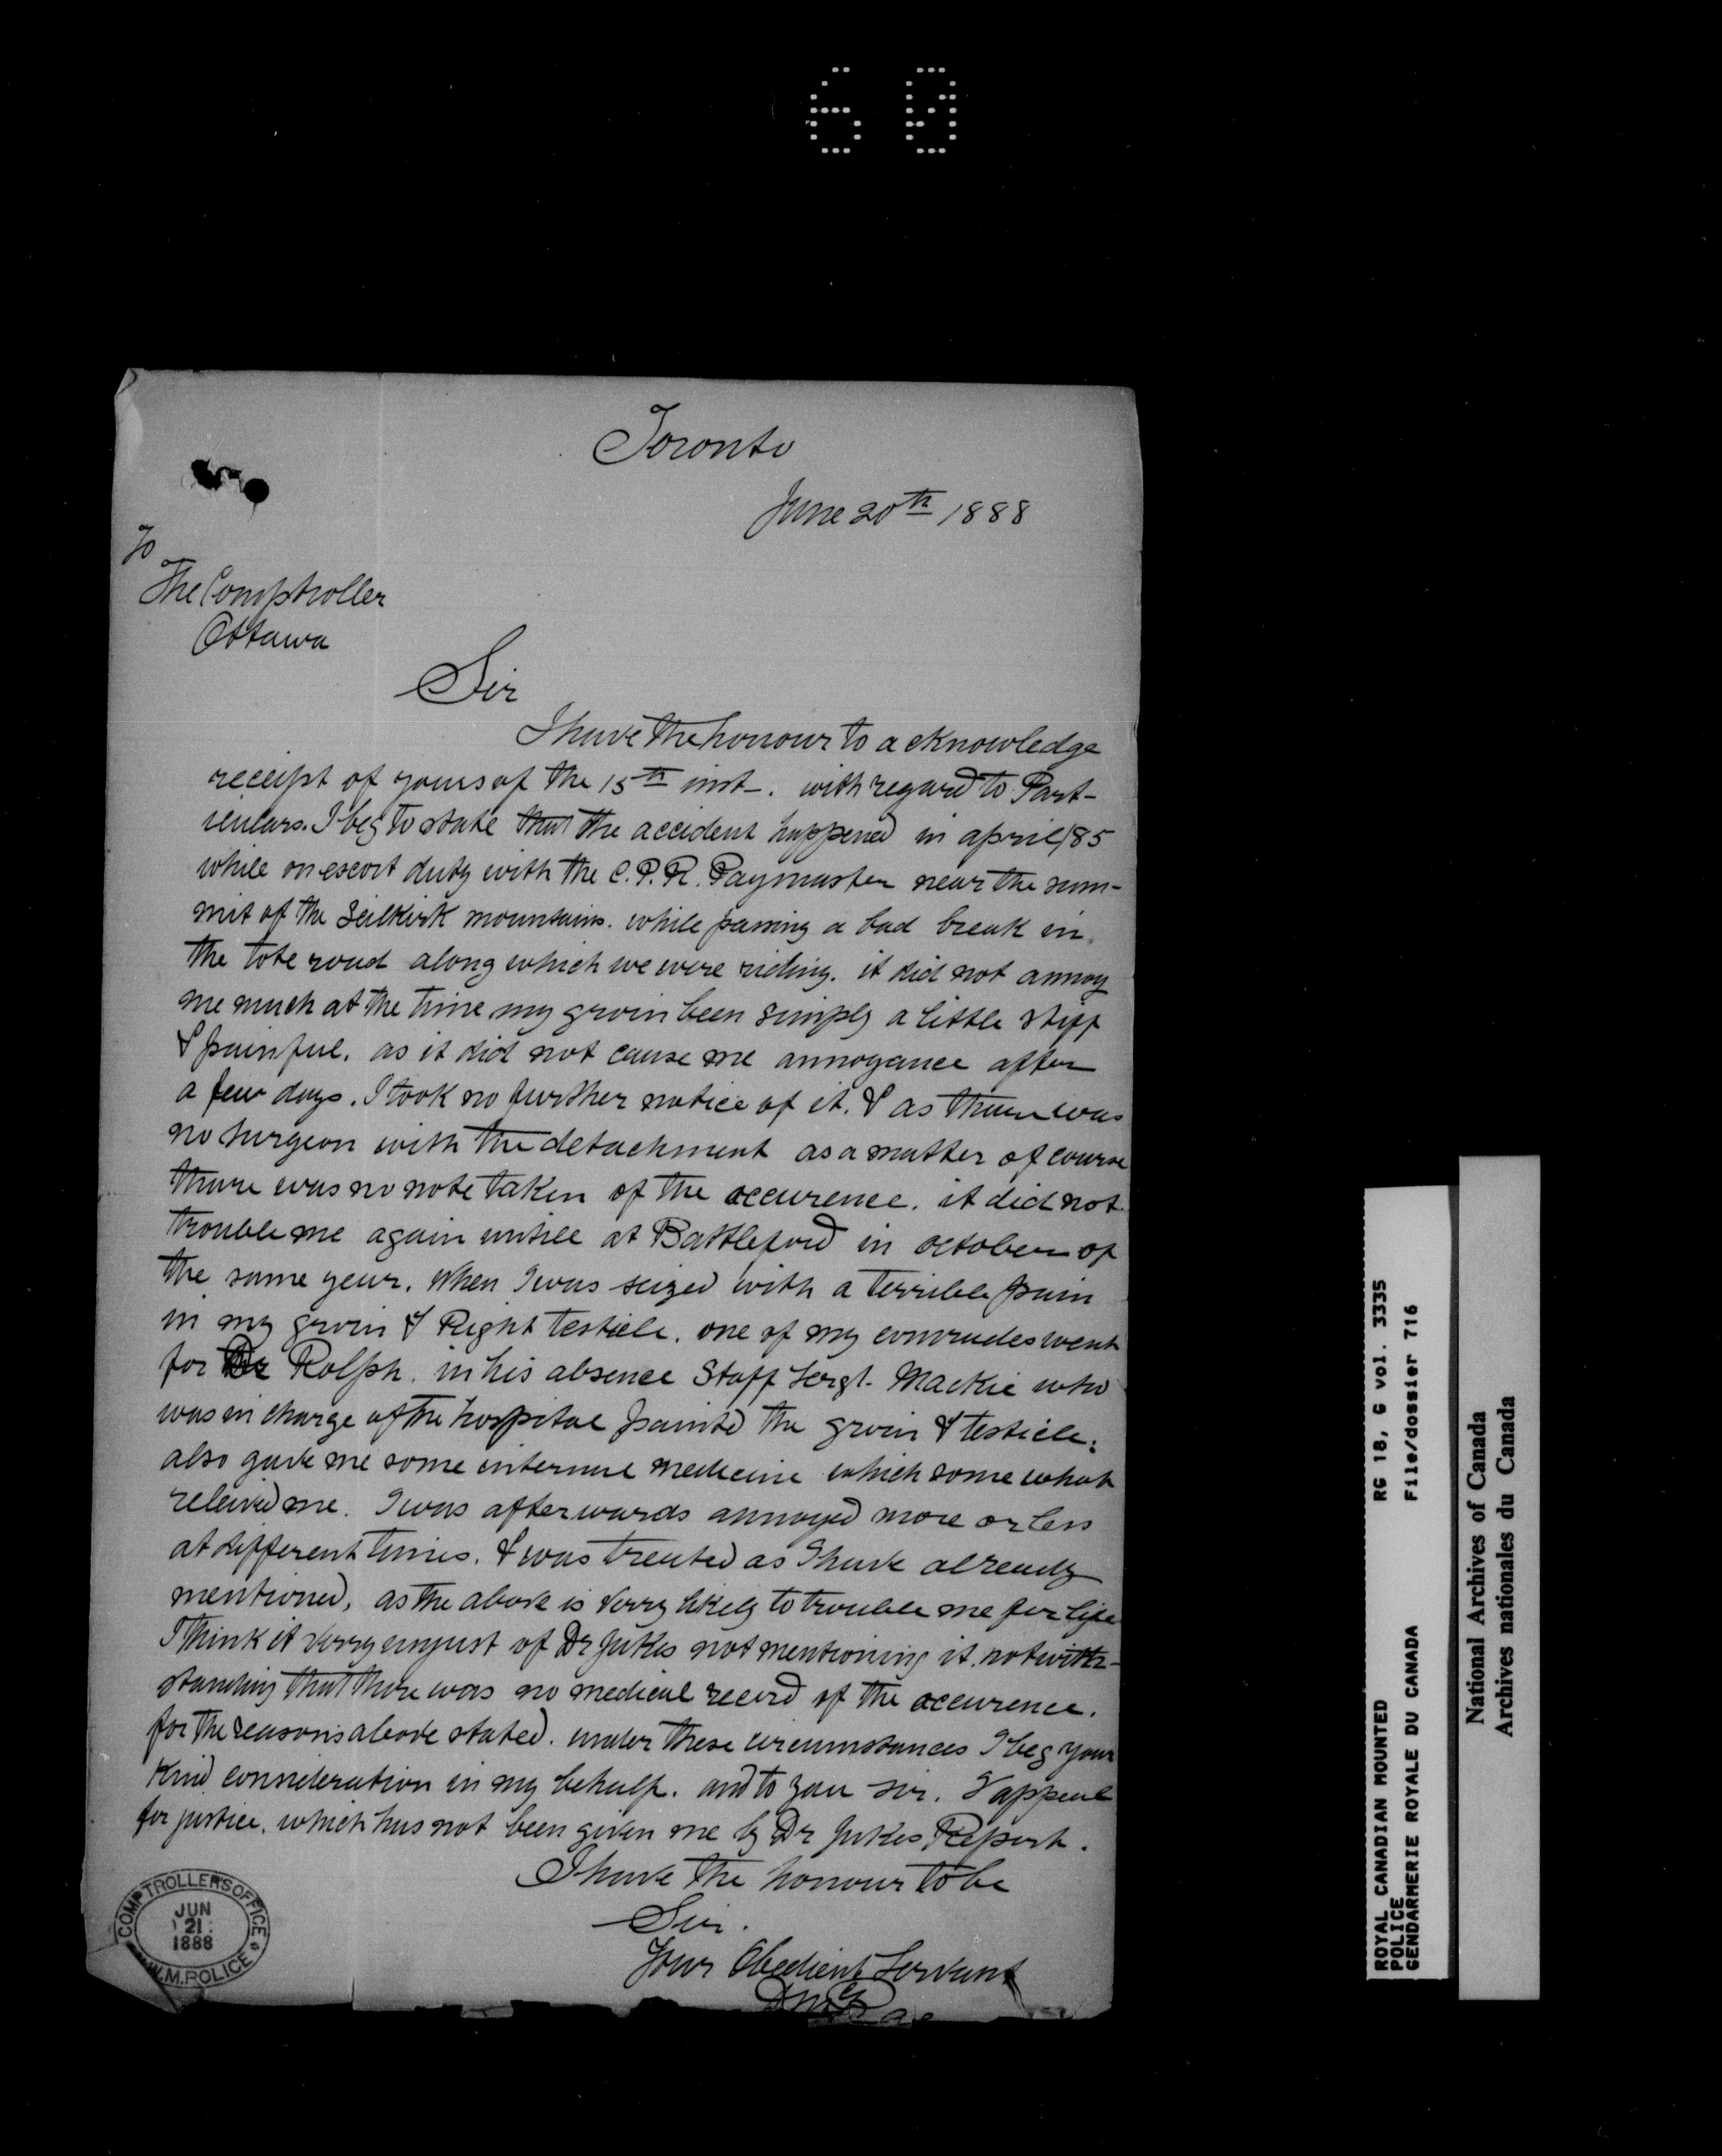 60
Toronto
June 20th 1888
To
The Comptroller
Ottawa
Sir
I have the honour to acknowledge
receipt of yours of the 15th inst-. with regard to Part-
iculars. I beg to state that the accident happened in april/85
while on escort duty with the C.P.R. Paymaster near the sum-
mit of the Seilkirk mountains. while passing a bad break in
the tote road along which we were riding. it did not annoy
me much at the time my groin been simply a little stiff
& painful. as it did not cause me annoyance after
a few days. I took no further notice of it. & as there was
no surgeon with the detachment as a matter of course
there was no note taken of the occurence. it did not
trouble me again untill at Battleford in october of
the same year. when I was seized with a terrible pain
in my groin & Right testicle. one of my comrades went
for Dr Rolph. in his absence Staff Sergt. Mackie who
was in charge of the hospital painted the groin & testicle.
also gave me some internal medicine which some what
releived me. I was afterwards annoyed more or less
at different times. & was treated as I have already
mentioned, as the above is verry likely to trouble me for life
I think it verry unjust of Dr Jukes not mentioning it. notwith-
standing that there was no medical record of the occurence.
for the reasons above stated. under these circumstances I beg your
Kind consideration in my behalf. and to you sir. I appeal
for justice. which has not been given me by Dr Jukes Report.
I have the honour to be
Sir.
Your Obedient Servant
COMPTROLLER'S OFFICE
JUN
21
1888
N.W.M. POLICE
ROYAL CANADIAN MOUNTED RG 18, G vol. 3335
POLICE
GENDARMERIE ROYALE DU CANADA File/dossier 716
National Archives of Canada
Archives nationales du Canada